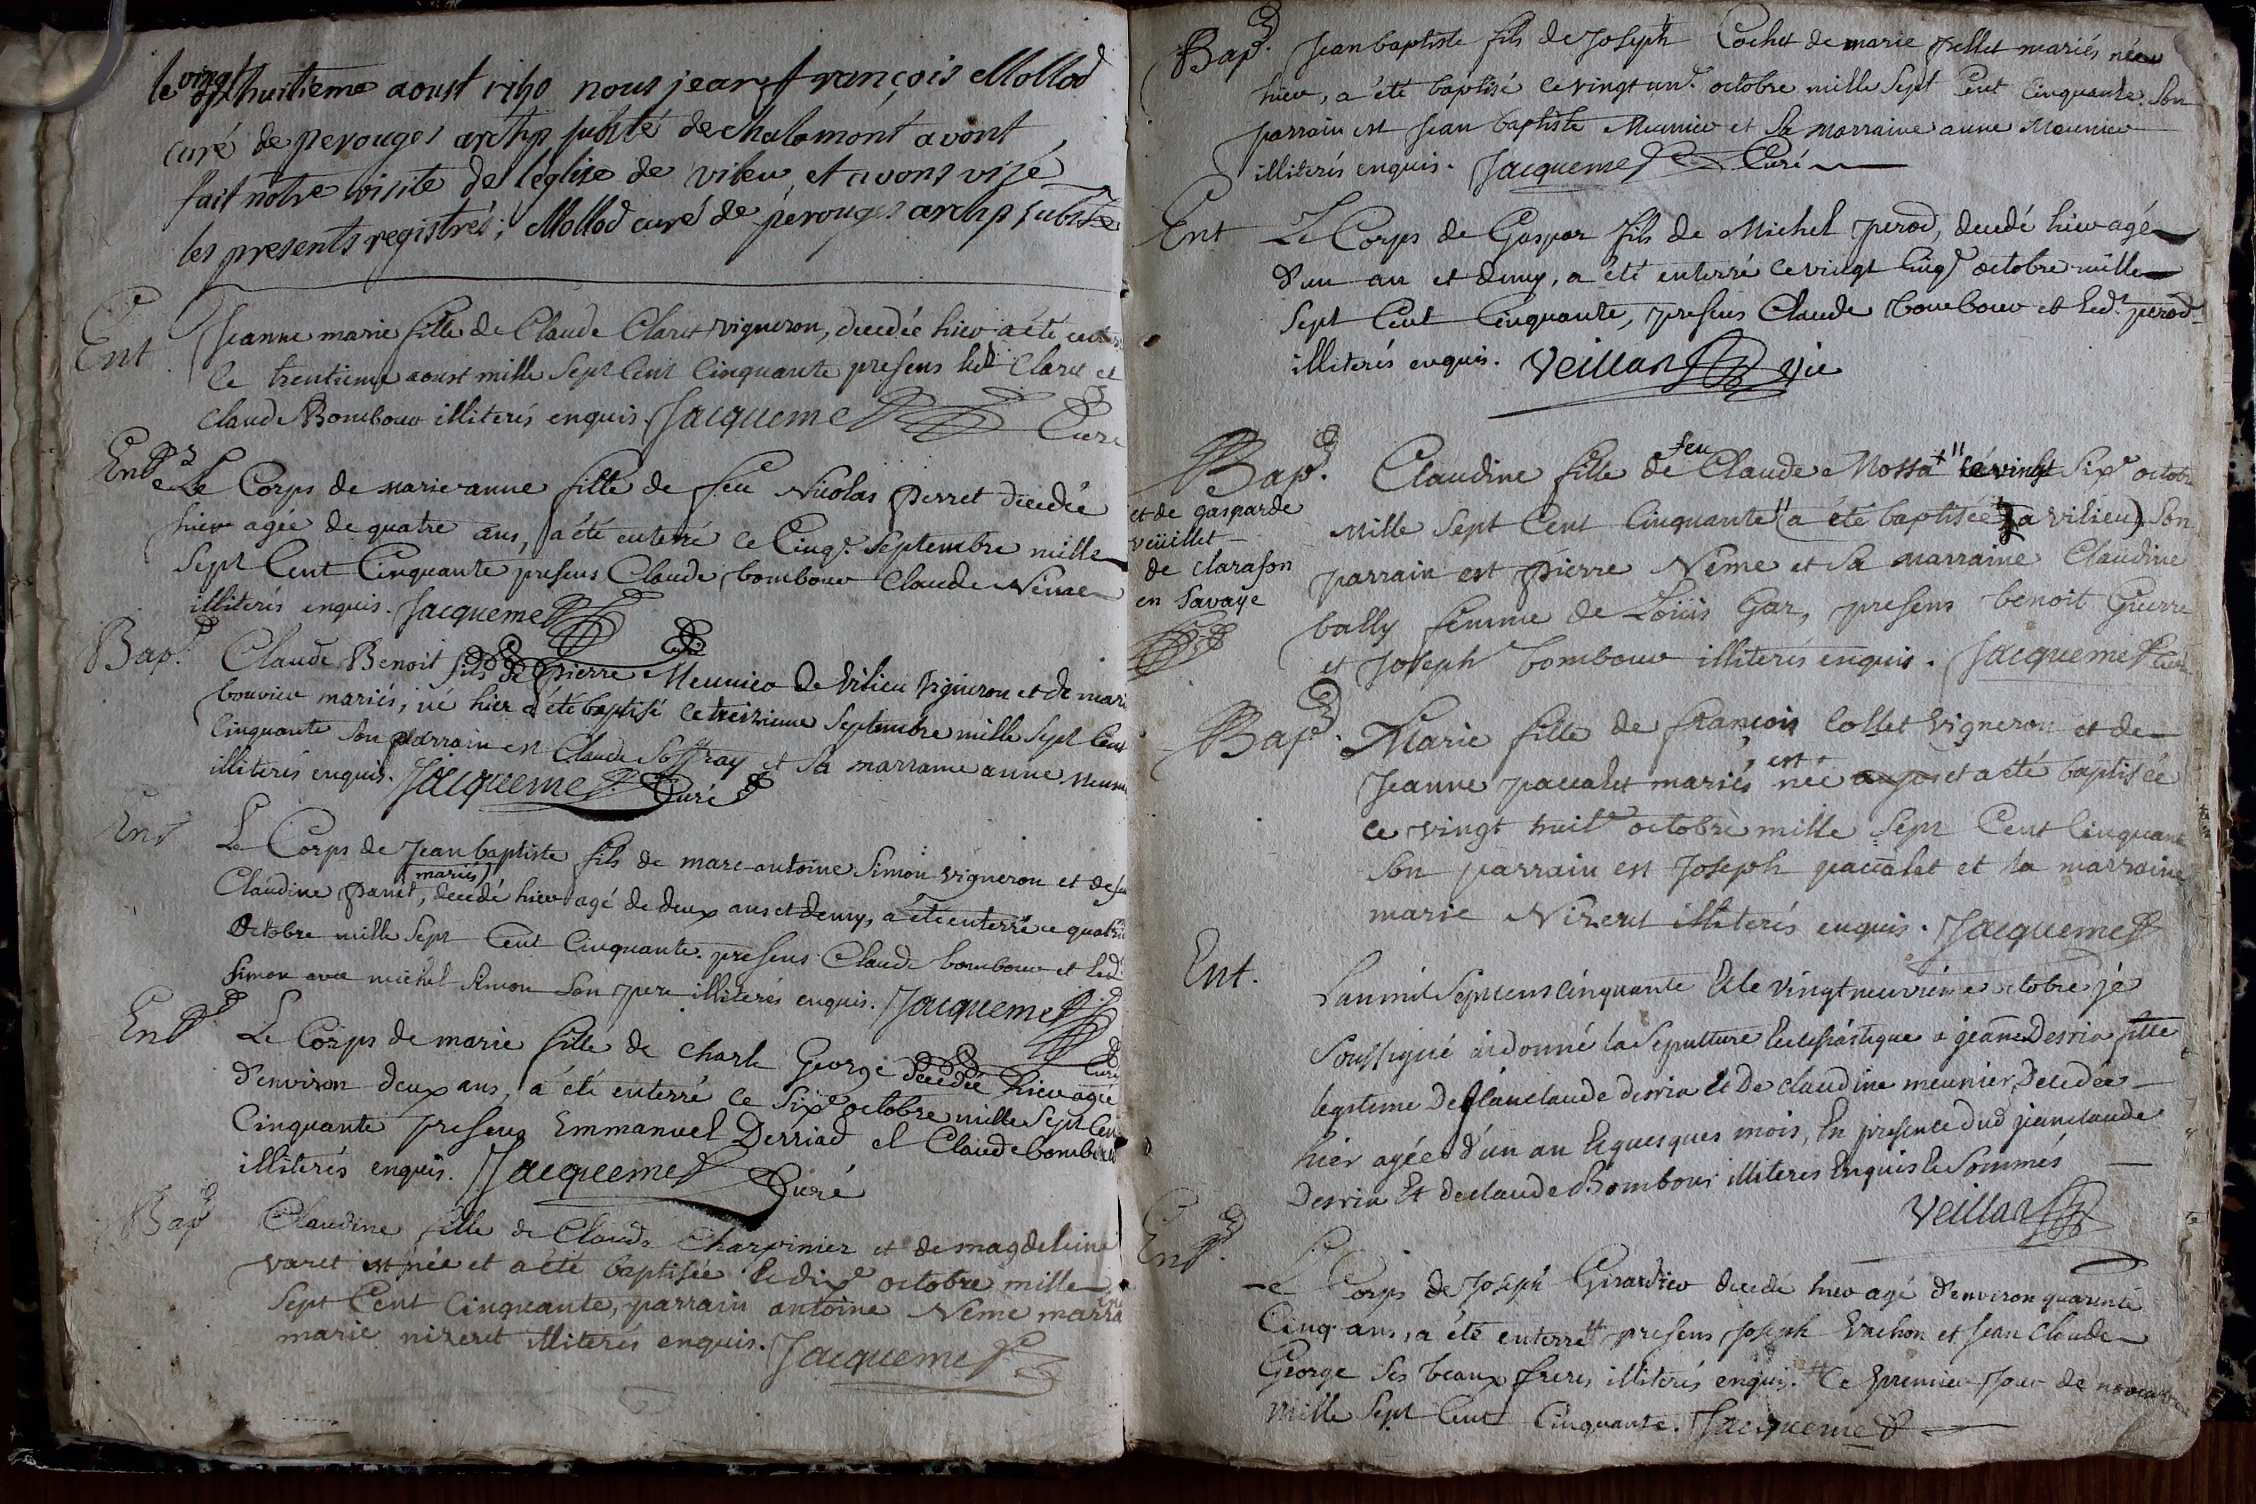 le vingt huitieme aoust 1750 nous jean françois Mollod
curé de perouges archip substé de chalamont avons
fait nôtre visite de l'eglise de vilieu, et avons visé
les presents registres; Mollod curé de perouges archip substé
Ent
Jeanne marie fille de Claude Claret vigneron, decedée hier a été
le trentieme aoust mille Sept Cent Cinquante presens led Claret et
Claude Bombour illiterés enquis. Jacquemet Curé
Ent
Le Corps de marie anne fille de feu Nicolas perret decedée
hier agée de quatre ans, a été enterré ce Cinqe Septembre mille
Sept Cent Cinquante presens Claude bombour Claude Nême
illiterés enquis. Jacquemet
Curé
Bap.
Claude Benoit fils de pierre Meunier de vilieu vigneron et de mari
bouvier mariés, né hier a été baptisé le treizieme Septembre mille Sept Cent
Cinquante Son parrain est Claude Soffray et Sa marraine anne meuni
illiterés enquis. Jacquemet Curé
Ent
Le Corps de Jean baptiste fils de marc antoine Simon vigneron et de
mariés
Claudine panet, decedé hier agé de deux ans et demy, a été enterré ce quatri
Octobre mille Sept Cent Cinquante. presens Claude bombour et led.
Simon avec michel Simon Son pere illiterés enquis. Jacquemet
Curé
Ent
Le Corps de marie fille de charle George decedée hier agée
d'environ deux ans, a été enterré ce Sixe octobre mille Sept Cen
Cinquante presens Emmanuel Derriad et Claude bombour
illiterés enquis. Jacquemet Curé
Bap
Claudine fille de Claude Charpinier et de magdeleine
varet est née et a été baptisée le dixe octobre mille
Sept Cent Cinquante, parrain antoine Neme marra
marie nizeret illiterés enquis. Jacquemet
Bap.
Jean baptiste fils de Joseph Cochet de marie pellet mariés né
hier, a été baptisé ce vingt un. octobre mille Sept Cent Cinquante. Son
parrain est Jean baptiste Meunier et Sa marraine anne Meunier
illiterés enquis. Jacquemet Curé
Ent
Le Corps de Gaspar fils de Michel perod, decedé hier agé
d'un an et demy, a été enterré ce vingt Cinqe octobre mille
Sept Cent Cinquante, presens Claude bombour et led. perod
illiterés enquis. Veillar vic
Bap.
feu
Claudine fille de Claude Mossa le vingt Sixe octobre
et de gasparde
veüillet
de clarafon
en Savaÿe
Mille Sept Cent Cinquante a été baptisée (a vilieu) Son
parrain est pierre Nême et Sa marraine Claudine
bally femme de Loüis Gar, presens benoit Guerre
et Joseph bombour illiterés enquis. Jacquemet Curé
Bap.
Marie fille de françois Collet vigneron et de
est
Jeanne paccalet mariés née et a été baptisée
ce vingt huite octobre mille Sept Cent Cinquante
Son parrain est Joseph paccalet et Sa marraine
marie Nizeret illiterés enquis. Jacquemet
Ent.
L'an mil Sept cens Cinquante Et le vingt neuvième octobre jé
Soussigné ai donné la Sepulture Ecclesiastique a jeanne Derria fille
legitime De jean claude derria Et De claudine meunier, Decedée
hier agée d'un an Et quesques mois, En presence dud jean claude
Derria Et de claude Bombour illiteres Enquis Et Sommés
Veillar
Ent.
Le Corps de Joseph Girardier decedé hier agé d'environ quarente
Cinq ans, a été enterré # presens Joseph Vachon et Jean Claude
George Ses beaux freres illiterés enquis. # Ce premier Jour de novembre
Mille Sept Cent Cinquante. Jacquemet